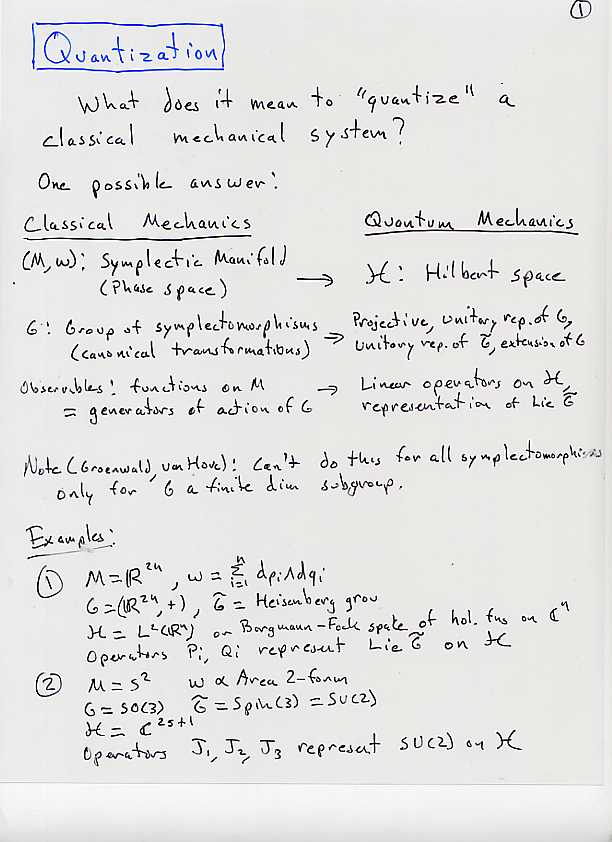 1
Quantization
What does it mean to "quantize" a
classical mechanical system?
One possible answer:
Classical Mechanics Quantum Mechanics
(M, ω): Symplectic Manifold → H: Hilbert space
(Phase space)
G: Group of symplectomorphisms → Projective, unitary rep. of G,
(canonical transformations) Unitary rep. of G̃, extension of G
Observables: functions on M → Linear operators on H,
= generators of action of G representation of Lie G̃
Note (Groenwald, van Hove): Can't do this for all symplectomorphisms
only for G a finite dim subgroup.
Examples:
① M = ℝ²ⁿ, ω = Σⁿᵢ₌₁ dpᵢ∧dqᵢ
G = (ℝ²ⁿ, +), G̃ = Heisenberg grou
H = L²(ℝⁿ) or Bargmann-Fock space of hol. fns on ℂⁿ
Operators Pᵢ, Qᵢ represent Lie G̃ on H
② M = S² ω ∝ Area 2-form
G = SO(3) G̃ = Spin(3) = SU(2)
H = ℂ²ˢ⁺¹
Operators J₁, J₂, J₃ represent SU(2) on H